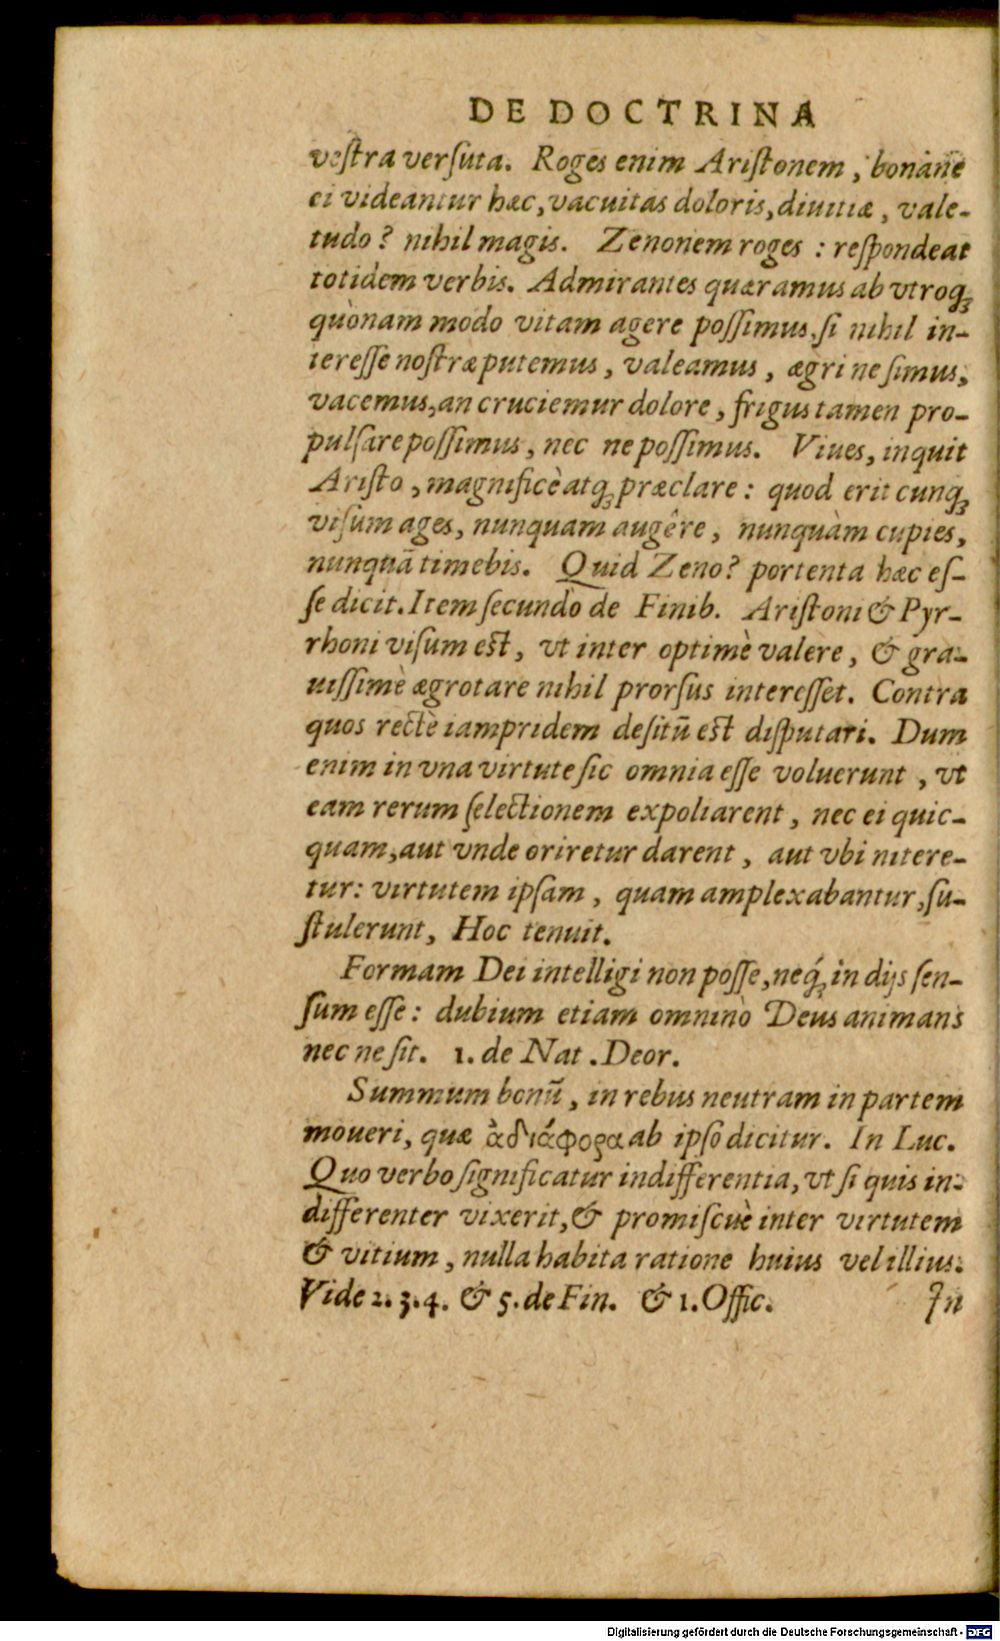 DE DOCTRINA
vestra versuta. Roges enim Aristonem, bonane
ei videantur hæc, vacuitas doloris, diuitiæ, vale-
tudo? nihil magis. Zenonem roges: respondeat
totidem verbis. Admirantes quæramus ab vtroq́;
quònam modo vitam agere possimus, si nihil in-
teresse nostræ putemus, valeamus, ægri ne simus,
vacemus, an cruciemur dolore, frigus tamen pro-
pulsare possimus, nec ne possimus. Viues, inquit
Aristo, magnificè atq́; præclare: quod erit cunq́;
visum ages, nunquam augêre, nunquàm cupies,
nunquā timebis. Quid Zeno? portenta hæc es-
se dicit. Item secundo de Finib. Aristoni & Pyr-
rhoni visum est, vt inter optimè valere, & gra-
uissimè ægrotare nihil prorsus interesset. Contra
quos rectè iampridem desitū est disputari. Dum
enim in vna virtute sic omnia esse voluerunt, vt
eam rerum selectionem expoliarent, nec ei quic-
quam, aut vnde oriretur darent, aut vbi nitere-
tur: virtutem ipsam, quam amplexabantur, su-
stulerunt, Hoc tenuit.
Formam Dei intelligi non posse, neq́; in dijs sen-
sum esse: dubium etiam omninò Deus animans
nec ne sit. 1. de Nat. Deor.
Summum bonū, in rebus neutram in partem
moueri, quæ ἀδιάφορα ab ipso dicitur. In Luc.
Quo verbo significatur indifferentia, vt si quis in-
differenter vixerit, & promiscuè inter virtutem
& vitium, nulla habita ratione huius vel illius.
Vide 2. 3. 4. & 5. de Fin. & 1. Offic. In
Digitalisierung gefördert durch die Deutsche Forschungsgemeinschaft - DFG